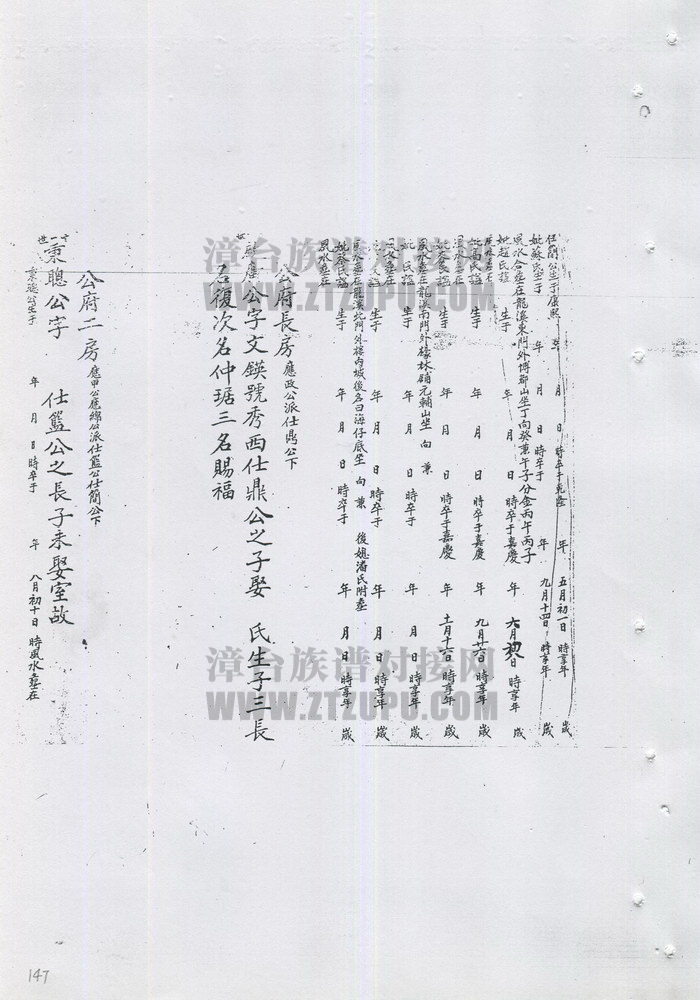 仕簡公生于康熙 年 月 日 時卒于乾隆 年 五月初一日 時享年 歲
妣蘇氏生于 年 月 日 時卒于 年 九月十四日 時享年 歲
風水合塟在龍溪東門外博郡山坐丁向癸兼午子分金丙午丙子
妣趙氏謚 生于 年 月 日 時卒于嘉慶 年 六月初 日 時享年 歲
風水塟在
妣馮氏謚 生于 年 月 日 時卒于嘉慶 年 九月廿六日 時享年 歲
風水塟在
生于 年 月 日 時卒于嘉慶 年 十一月十六日 時享年 歲
風水塟在龍溪南門外 林鋪元輔山坐 向 兼
妣 氏謚 生于 年 月 日 時卒于 年 月 日 時享年 歲
風水塟在
生于 年 月 日 時卒于 年 月 日 時享年 歲
風水塟在龍溪北門外樓內城後名曰海仔底坐 向 兼 後媳潘氏附塟
妣蔡氏謚 生于 年 月 日 時卒于 年 月 日 時享年 歲
風水塟在
公府長房 應政公派仕鼎公下
公字文鍈號秀西仕鼎公之子娶 氏生子三長
名復次名仲琚三名賜福
公府二房 應甲公應綿公派仕籃公仕簡公下
十一世 秉聰公字 仕籃公之長子未娶室故
秉聰公生于 年 月 日 時卒于 年 八月初十日 時風水塟在
漳台族谱对接网
WWW.ZTZUPU.COM
漳台族谱对接网
WWW.ZTZUPU.COM
147